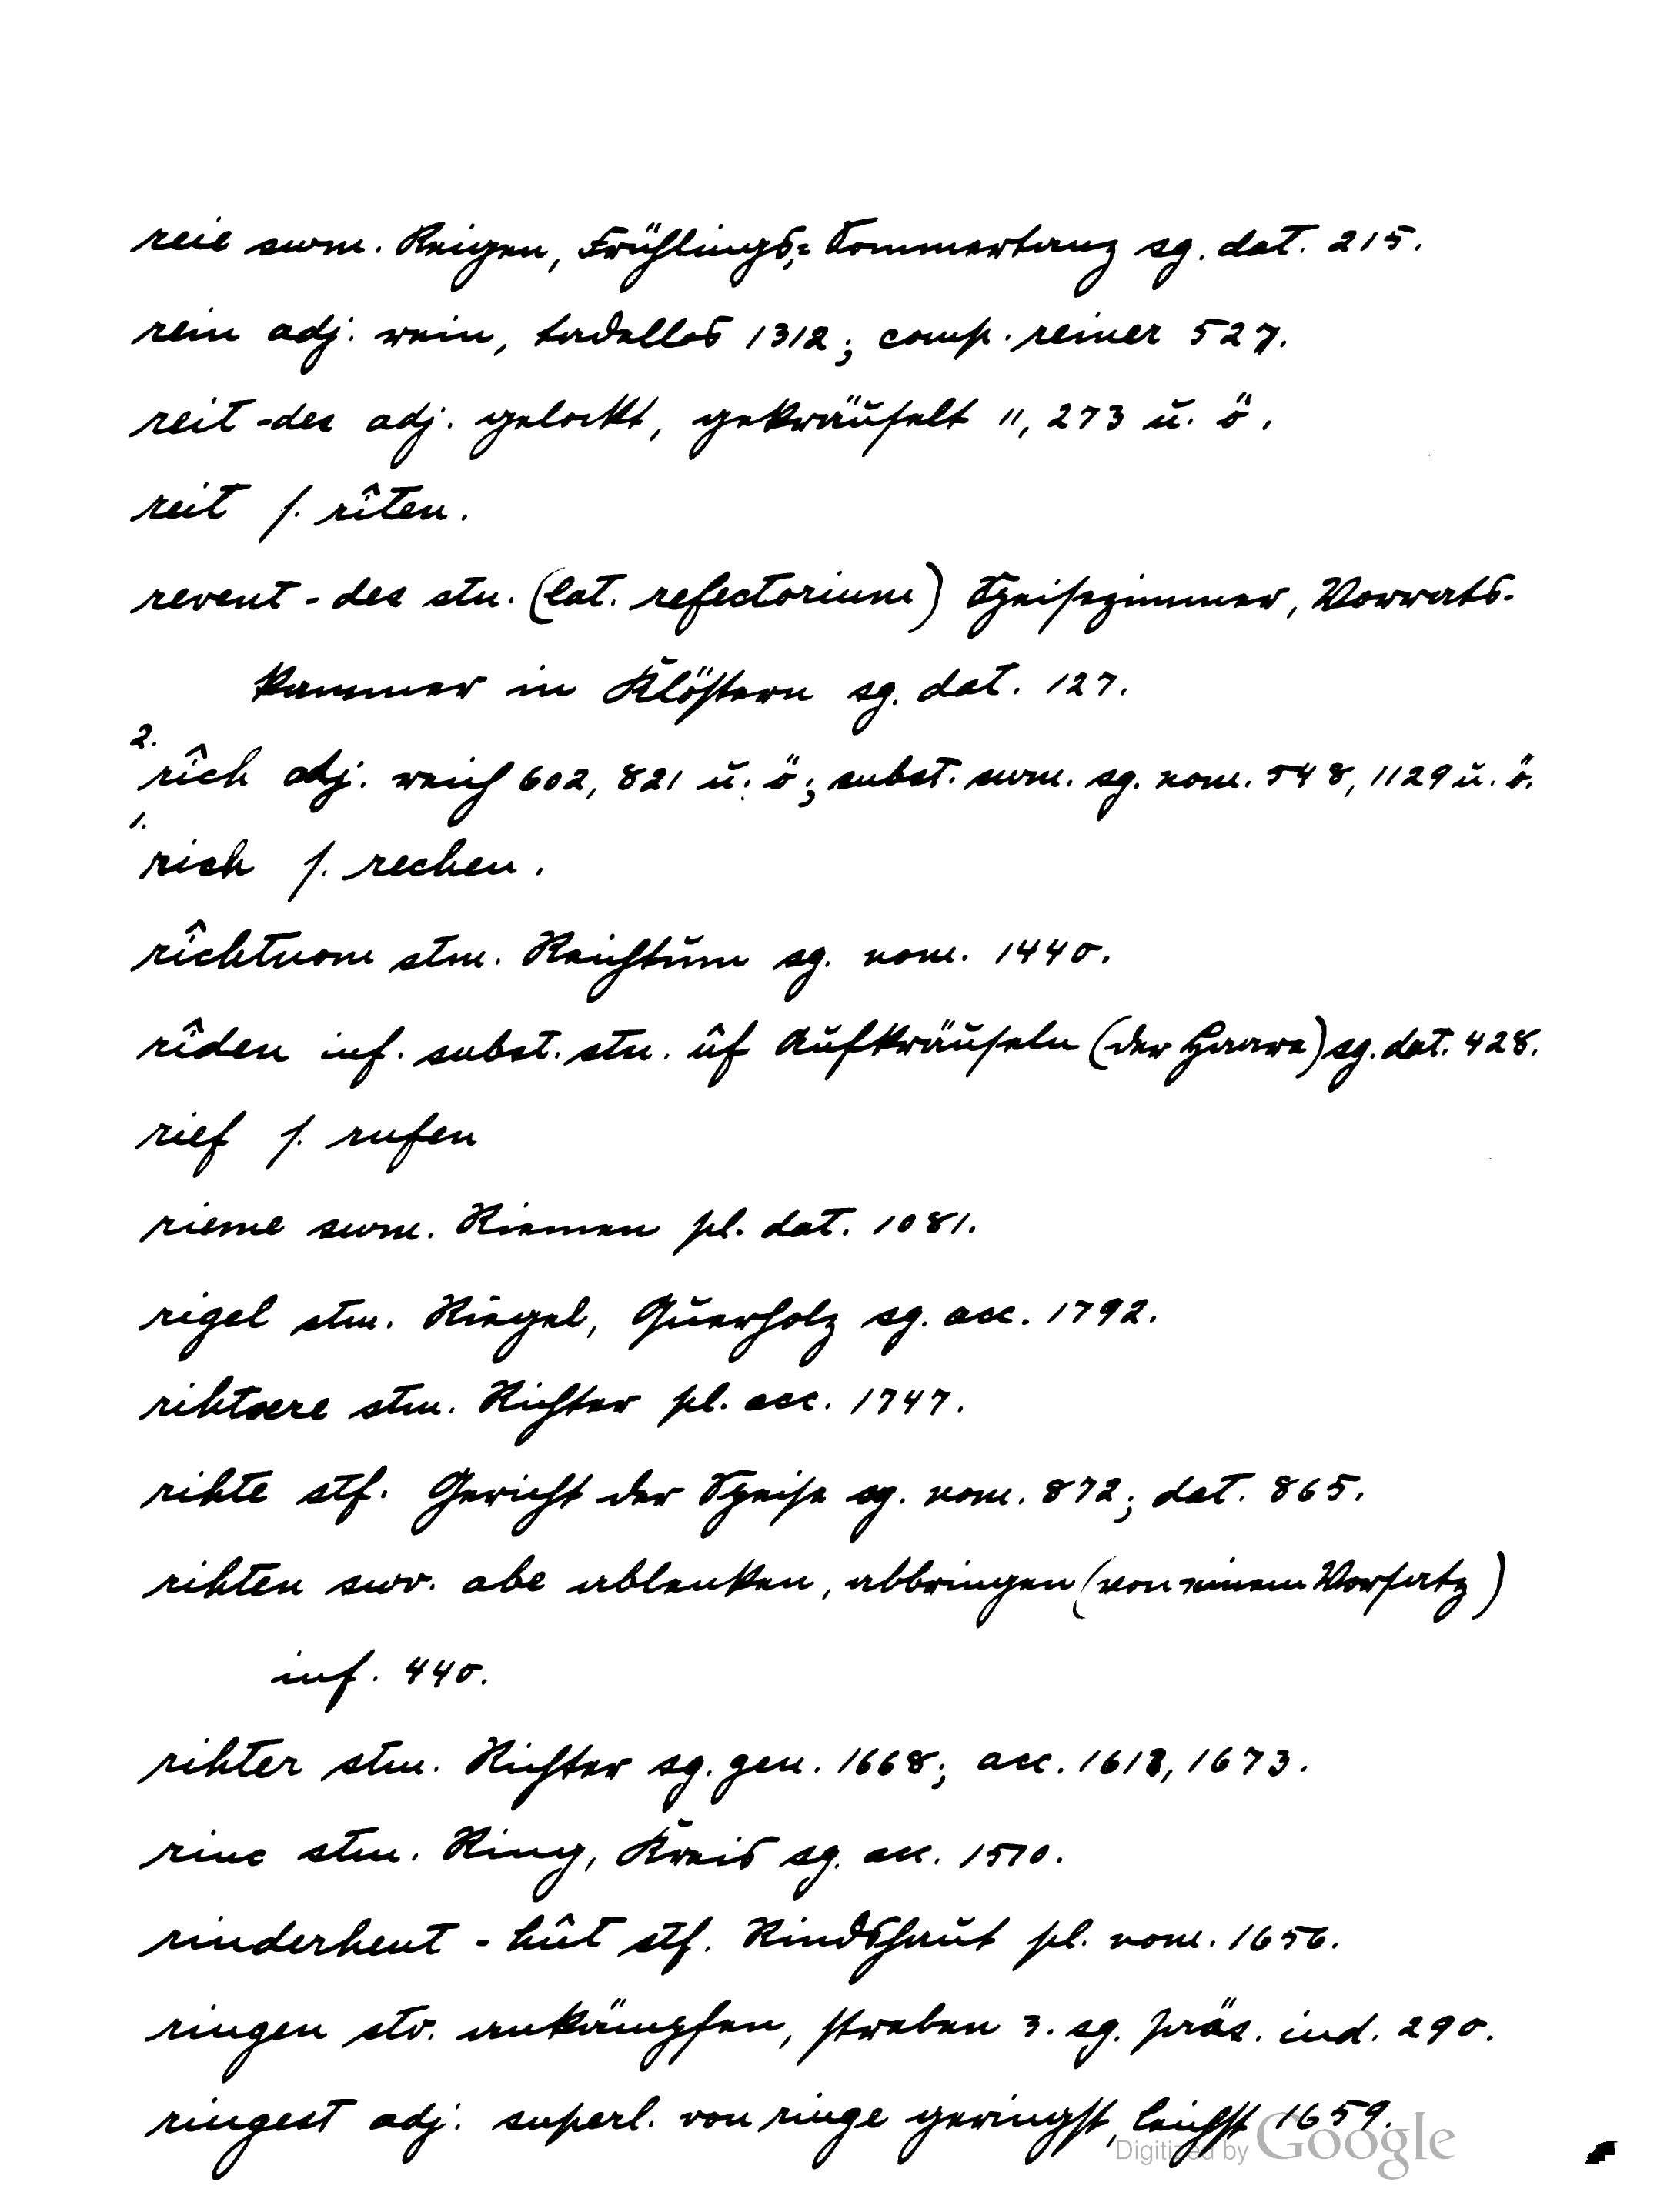 reie swm. Reigen, Frühlings-, Sommertanz sg. dat. 215.
rein adj. rein, tadellos 1312; comp. reiner 527.
reit -des adj. gelockt, gekräuselt 11, 273 u. ö.
reit s. rîten.
revent - des stn. (lat. refectorium) Speisezimmer, Vorrats-
kammer in Klöstern sg. dat. 127.
2.
rîch adj. reich 602, 821 u. ö; subst. swm. sg. nom. 548, 1129 u. ö.
1.
rich s. rechen.
rîchtuom stm. Reichtum sg. nom. 1440.
rîden inf. subst. stn. ûf Aufkräuseln (der Haare) sg. dat. 428.
rief s. rufen
rieme swm. Riemen pl. dat. 1081.
rigel stm. Riegel, Querholz sg. acc. 1792.
rihtaere stm. Richter pl. acc. 1747.
rihte stf. Gericht der Speise sg. nom. 872; dat. 865.
rihten swv. abe ablenken, abbringen (von einem Vorsatz)
inf. 440.
rihter stm. Richter sg. gen. 1668; acc. 1673.
rinc stm. Ring, Kreis sg. acc. 1510.
rinderheut - hût stf. Rindshaut pl. nom. 1656.
ringen stv. ankämpfen, streben 3. sg. präs. ind. 290.
ringest adj. superl. von ringe geringst, leichst 1659.
Digitized by Google